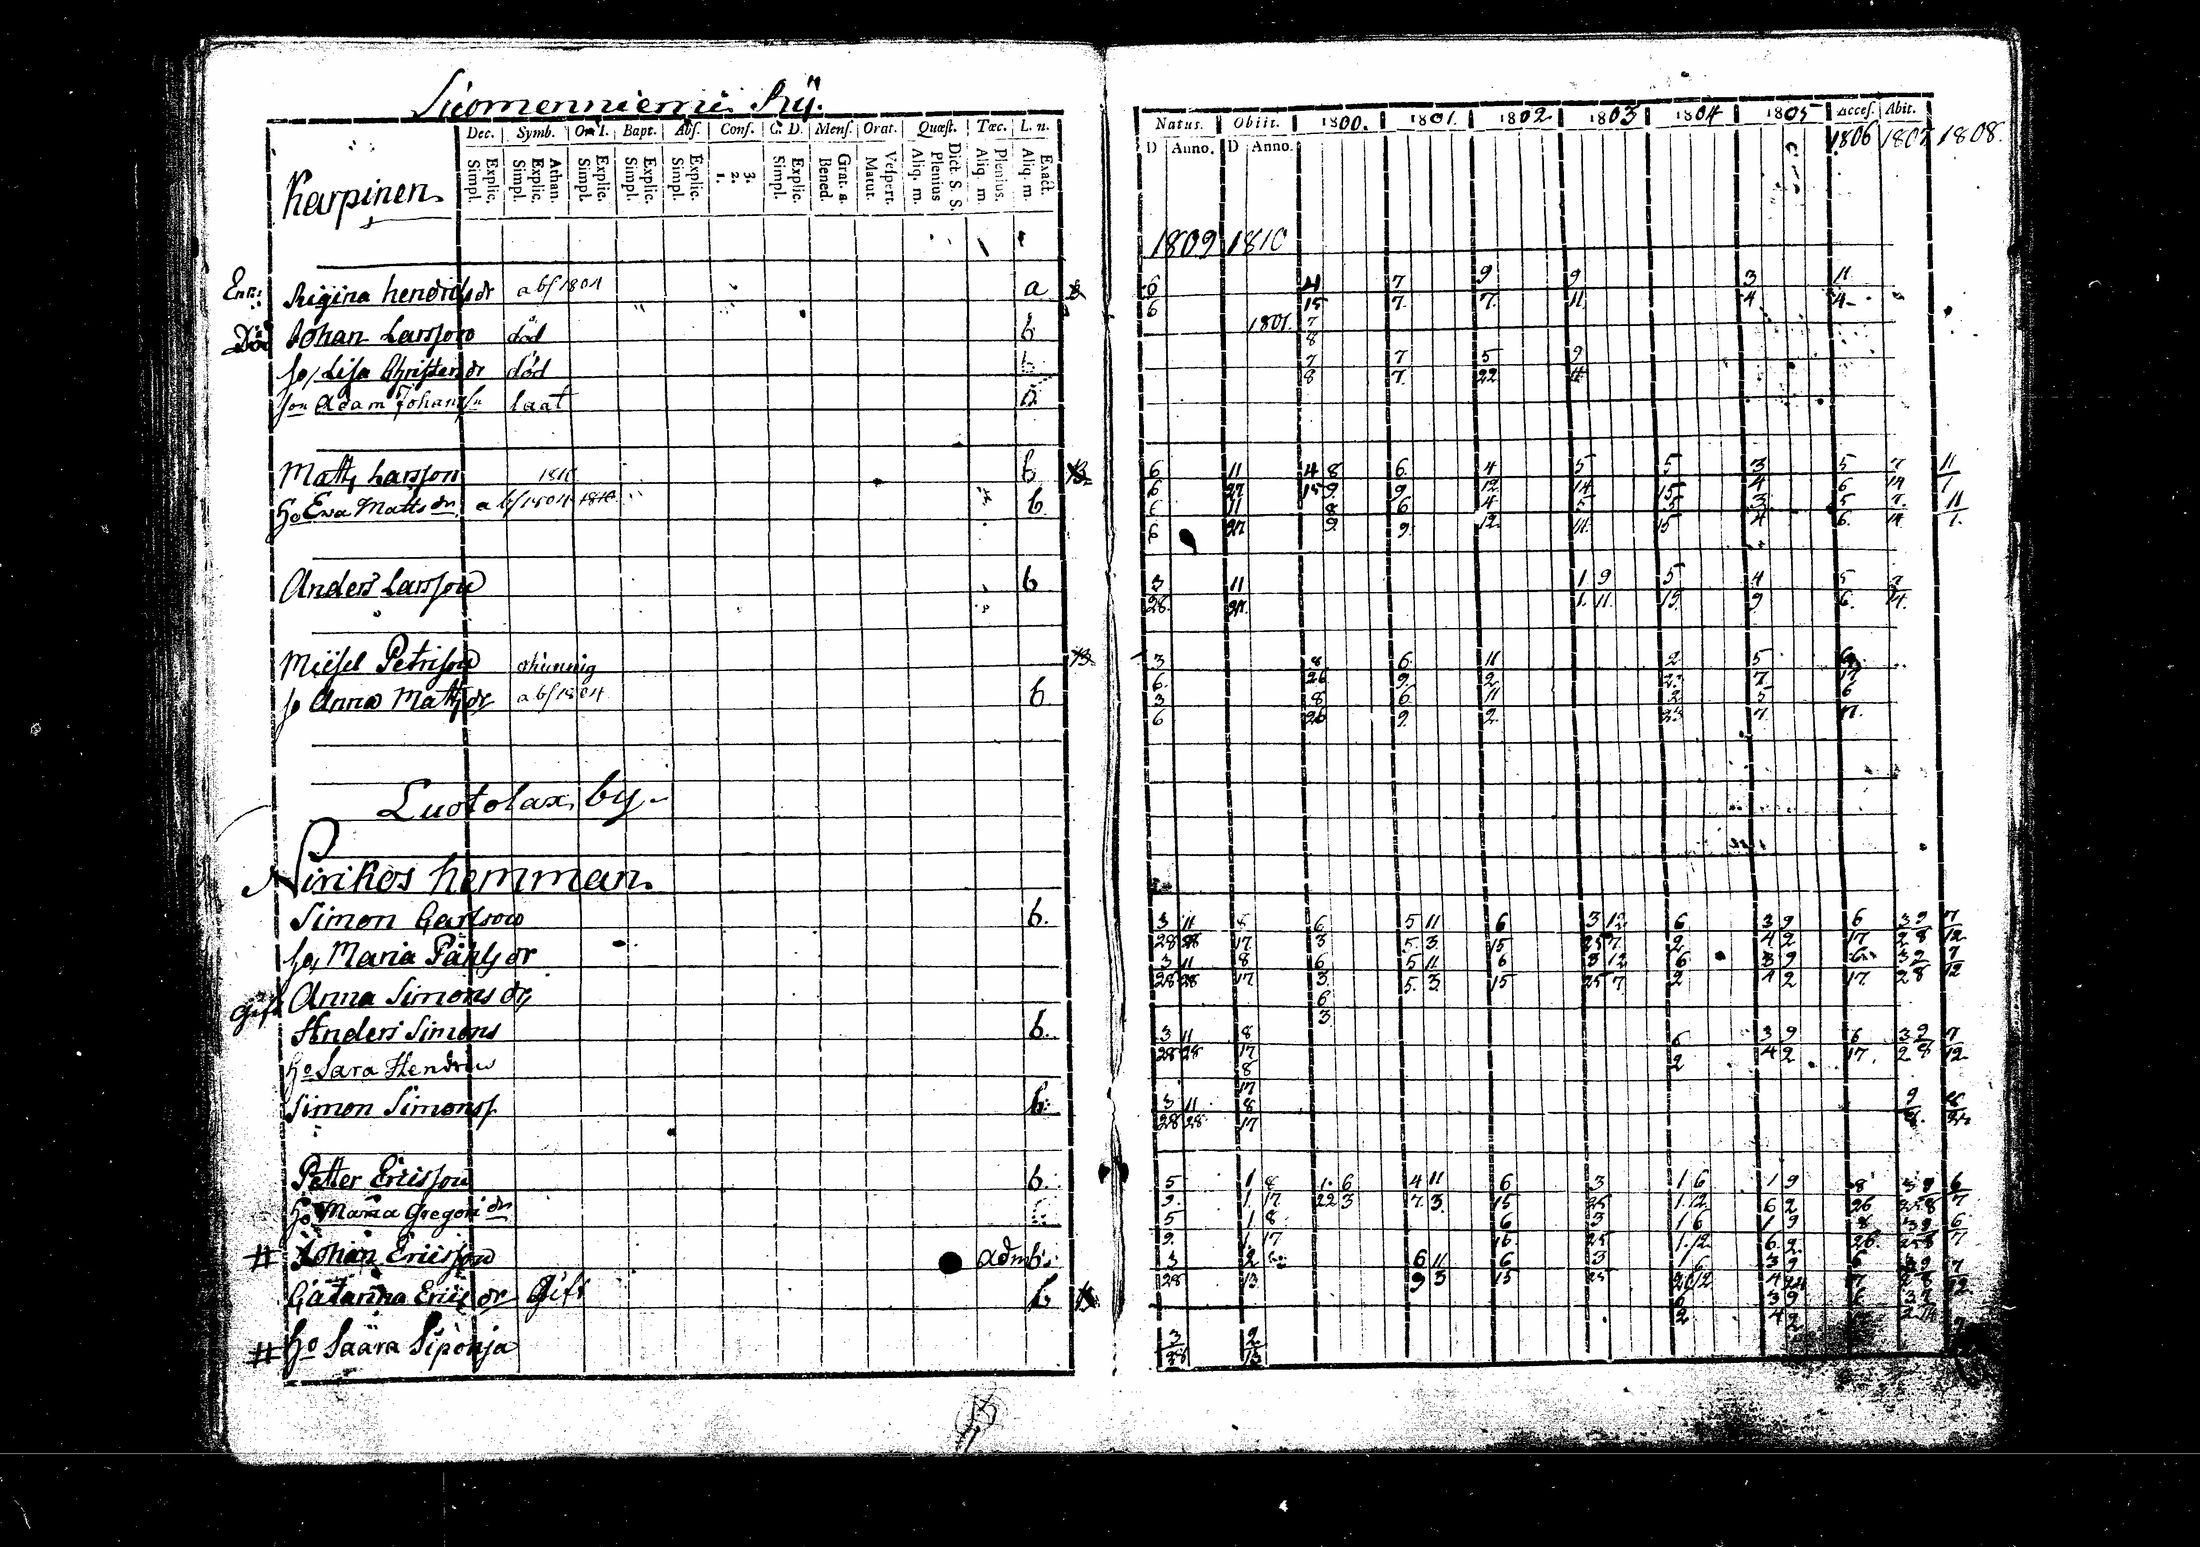 Suomenniemi by.
Dec. Symb. Or. D. Bapt. Abs. Conf. C. D. Mens. Orat. Quæst. Tæc. L. n.
Explic. Simpl. Athan. Explic. Simpl. Explic. Simpl. Explic. Simpl. Explic. Simpl. 3. 2. 1. Explic. Simpl. Grat. a. Bened. Vespert. Matut. Dict. S. S. Plenius Aliq. m. Plenius. Aliq. m. Exact. Aliq. m.
Natus. Obiit. 1800. 1801. 1802 1803 1804 1805 Acces. Abit.
D Anno. D Anno. 1806 1807 1808.
Karpinen
1809 1810
Enk: Regina Hendrichsdr abs 1804 a 6 11 7 9 9 3 11
6 15 7. 7. 11 4 4
Död Johan Larsson död b 1801. 7
8
ho, Lisa Christersdr död b 7 7 5 9
8 7. 22 4
son Adam Johanss laat
Matts Larsson 1810 b 6 11 4 8 6 4 5 5 3 5 7 11
6 27 15 9. 9 12 14 15 4 6 14 1
ho Ewa Matts dr abs 1804 1810 b 6 11 8 6 4 5 5 3 5 7. 11
6 27 9. 9. 12. 11. 15 4 6. 14 1.
Anders Larsson b 3 11 1 9 5 4 5 7
28 27. 1. 11. 15. 9 6. 14.
Michel Petrisson ohunnig 3 8 6 11 2 5 6
6. 26 9. 2 23 7. 17
ho Anna Matts dr abs 1804 b 3 8 6 11 2 5 6
6 26 9. 2. 23 7. 17.
Luotolax by
Nirikos hemman.
Simon Carlsson b. 3 11 8 6 5 11 6 3 12 6 3 9 6 3 9 7
28 28 17 3 5. 3 15 25 7 2 4 2 17 2 8 12
ho, Maria Påhls dr 3 11 8 6 5 11 6 3 12 6 3 9 6 3 9 7
28 28 17 3. 5. 3. 15 25 7 2 4 2 17. 2 8 12
Gift Anna Simons dr 6
3
Anders Simons b. 3 11 8 6 3 9 6 3 9 7
28 28 17 2 4 2 17. 2 8 12
ho Sara Hendr 8
17
Simon Simonss b 3 11 8 9
28 28 17 8.
Petter Ericsson b. 5 1 8 1. 6 4 11 6 3 1 6 1 9 8 3 9 6
9. 1. 17 22 3 7. 3. 15 25 1. 12 6 2 26 25 8 7
ho Maria Gregori dr 5 1 8. 6 3 1 6 1 9 8 3 9 6
9. 1. 17 16. 25 1. 12 6 2 26 25 8 7
# Johan Ericsson adm b. 3 2 6 11 6 3 1 6 3 9 6 3 9 7
28 13 9 3 15 25 4 7 2 8 12
Catarina Erics dr Gift b 6 3 9 6 3 9
2 4 2
# ho Saara Siponja 3 2
28 13